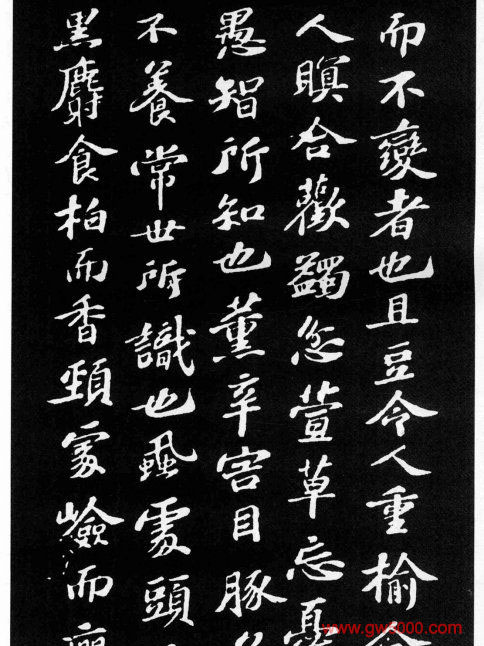 而不變者也且豆令人重榆
人瞑合歡蠲忿萱草忘憂
愚智所知也薰辛害目豚
不養常世所識也蝨處頭
黑麝食柏而香頸處險而
www.gw5000.com